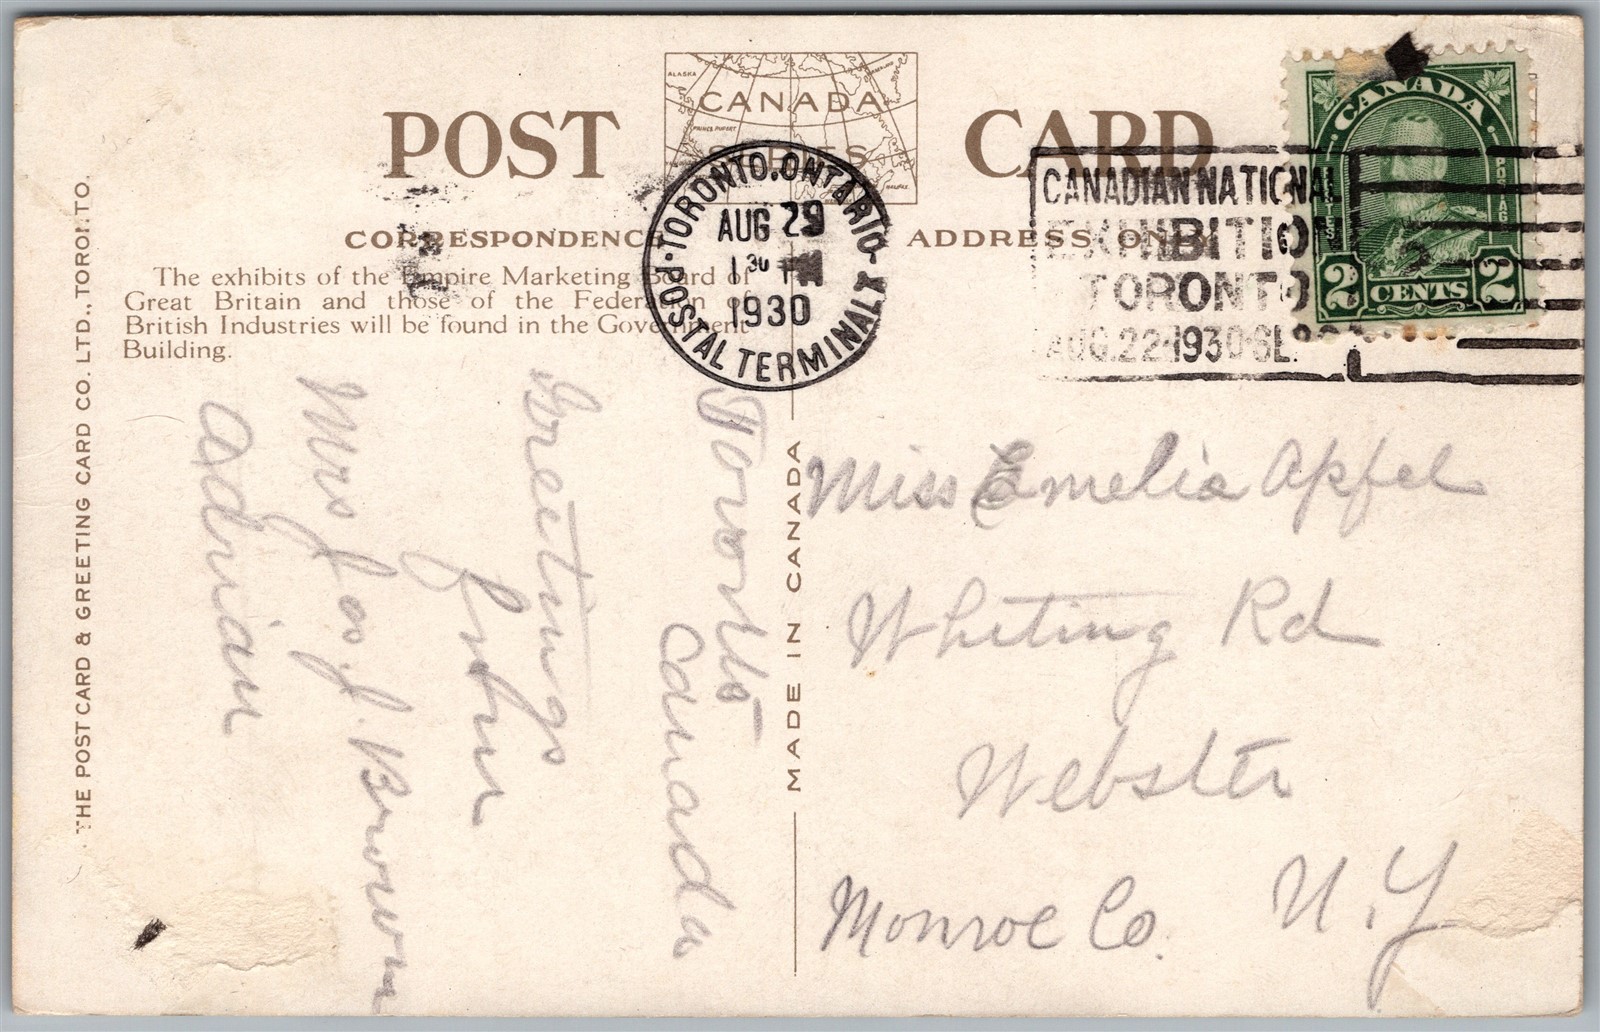 POST CARD
CANADA
SERIES
ALASKA
PRINCE RUPERT
HALIFAX
CORRESPONDENCE
ADDRESS ONLY
The exhibits of the Empire Marketing Board of
Great Britain and those of the Federation of
British Industries will be found in the Government
Building.
TORONTO, ONTARIO
AUG 29
1 30 PM
1930
POSTAL TERMINAL A
CANADIAN NATIONAL
EXHIBITION
TORONTO
AUG. 22-1930-SE
CANADA
POSTAGE
POSTES
2 CENTS 2
THE POST CARD & GREETING CARD CO. LTD., TORONTO.
MADE IN CANADA
Toronto
Canada
Greetings
from
Mrs Jos J. Brown
Adrian
Miss Emelia Apfel
Whiting Rd
Webster
Monroe Co. N.Y